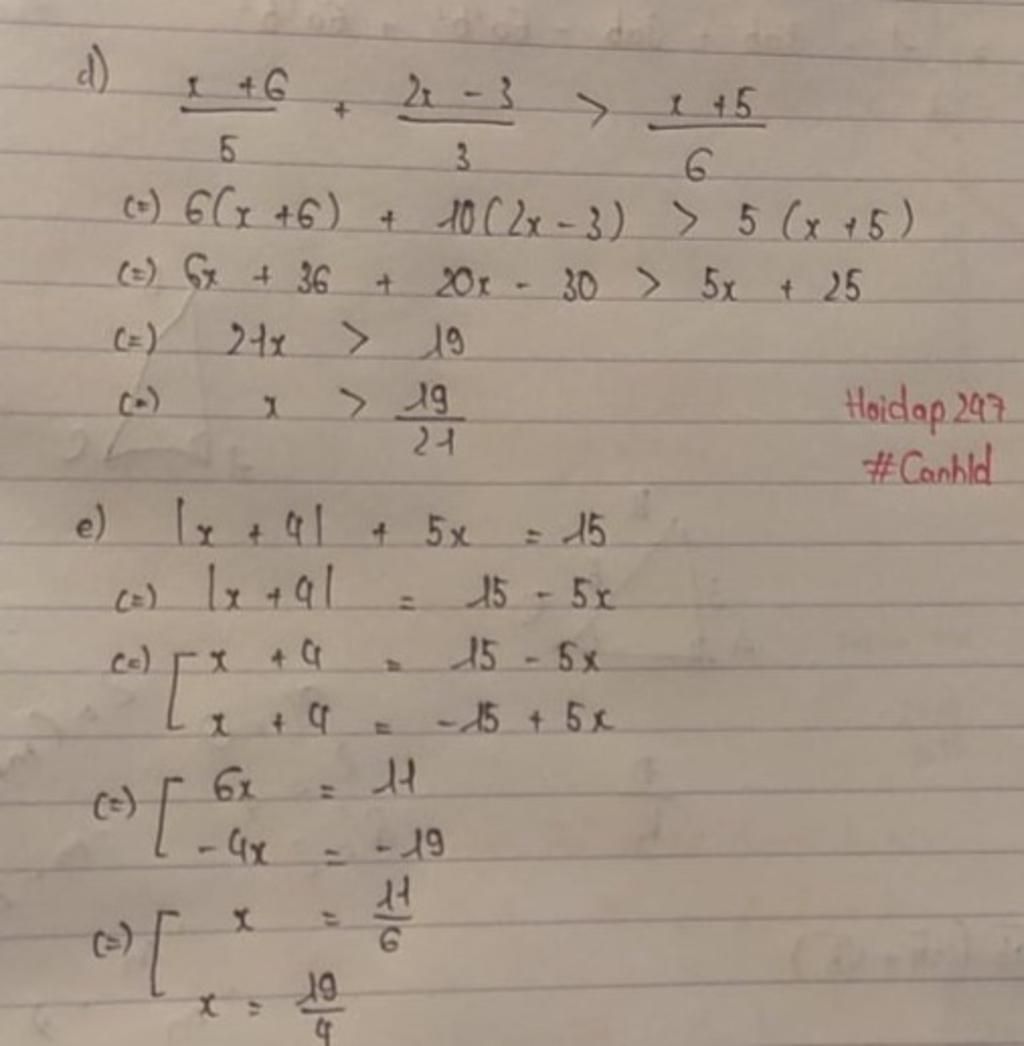 d) x + 6 / 5 + 2x - 3 / 3 > x + 5 / 6
(=) 6(x + 6) + 10(2x - 3) > 5 (x + 5)
(=) 6x + 36 + 20x - 30 > 5x + 25
(=) 21x > 19
(=) x > 19 / 21
Hoidap 247
#Canhld
e) |x + 4| + 5x = 15
(=) |x + 4| = 15 - 5x
(=) [ x + 4 = 15 - 5x
x + 4 = -15 + 5x
(=) [ 6x = 11
-4x = -19
(=) [ x = 11 / 6
x = 19 / 4